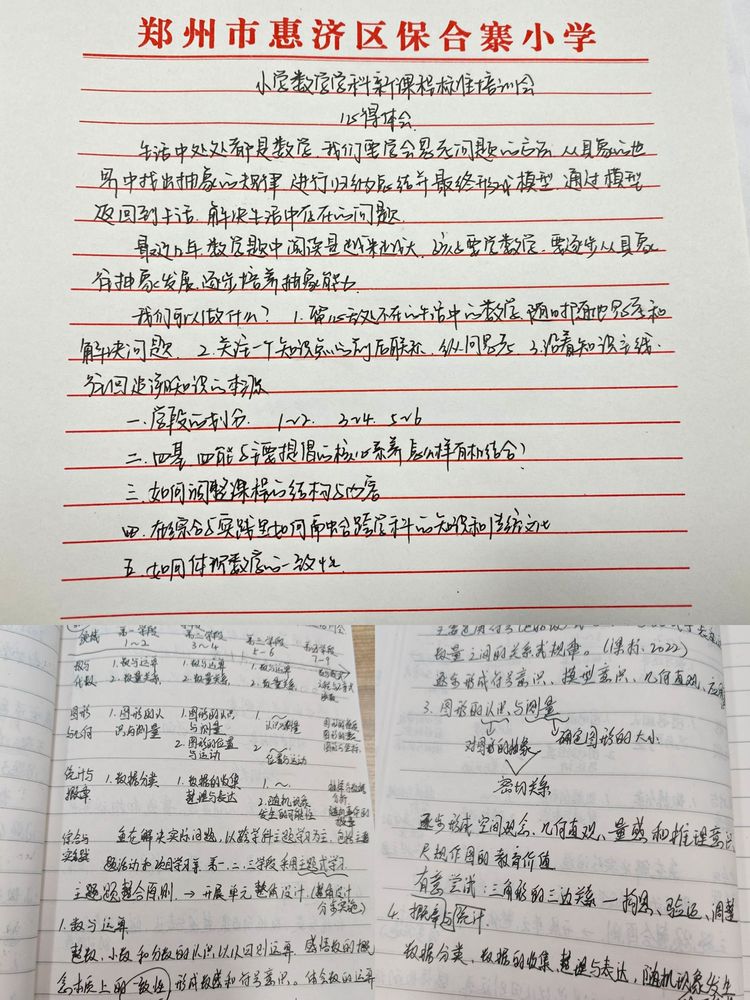 郑州市惠济区保合寨小学
小学数学学科新课程标准培训会
心得体会
生活中处处都是数学,我们要学会思充问题的言语,从具象的世
界中找出抽象的规律,进行归纳总结并最终形成模型,通过模型
返回到生活,解决生活中存在的问题.
最近几年,数学题中阅读量越来越大,所以要学数学,要逐步从具象
往抽象发展,逐步培养抽象能力.
我们可以做什么? 1.留心无处不在的生活中的数学,随时随地思考和
解决问题. 2.关注一个知识点的前后联系,纵向思考. 3.沿着知识主线
往回追溯知识的本源
一.学段的划分. 1~2. 3~4. 5~6
二.四基、四能与主要提倡的核心素养怎么样有机结合?
三.如何调整课程的结构与内容
四.在综合与实践里如何融合跨学科的知识和传统文化
五.如何体现数学的一致性.
领域 第一学段 第二学段 第三学段 第四学段
1~2 3~4 5~6 7~9
数与 1.数与运算 1.数与运算 1.数与运算
代数 2.数量关系 2.数量关系 2.数量关系
图形 1.图形的认 1.图形的认识 1.~
与几何 识与测量 与测量 认识与测量
2.图形的位置 2.~
与运动 位置与运动
统计与 1.数据分类 1.数据的收集 1.~
概率 整理与表达 2.随机现象
发生的可能性
综合与 重在解决实际问题,以跨学科主题学习为主,包括主题
实践 活动和项目学习等.第一、二、三学段采用主题式学习.
主题 整合原则. → 开展单元整体设计.(整体设计
分步实施)
1.数与运算
整数、小数和分数的认识以及四则运算.感悟数的概
念本质上的一致性,形成数感和符号意识.体会数的运算
数量之间的关系或规律.(课标,2022)
逐步形成符号意识、模型意识、几何直观、应用
3.图形的认识与测量
对图形的抽象 确定图形的大小
密切关系
逐步形成空间观念、几何直观、量感和推理意识
尺规作图的教育价值
有意尝试:三角形的三边关系—构思、验证、调整
4.概率与统计.
数据分类、数据的收集、整理与表达,随机现象发生